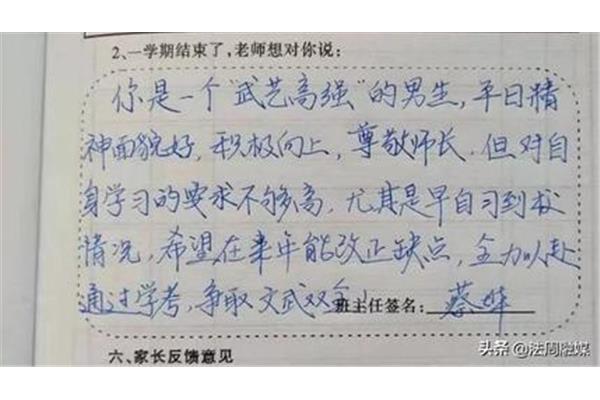 2、一学期结束了,老师想对你说:
你是一个"武艺高强"的男生,平日精
神面貌好,积极向上,尊敬师长.但对自
身学习的要求不够高,尤其是早自习到校
情况,希望在来年能改正缺点,全力以赴
通过学考,争取文武双全!
班主任签名:蔡华
六、家长反馈意见
头条 @法周融媒